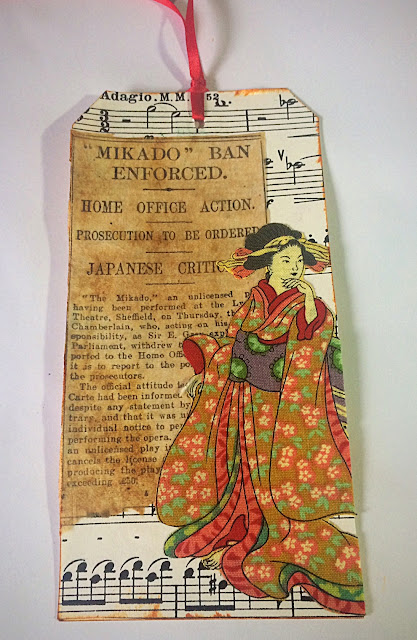 Adagio. M.M. 52
"MIKADO" BAN
ENFORCED.
HOME OFFICE ACTION.
PROSECUTION TO BE ORDERED
JAPANESE CRITIC
"The Mikado," an unlicensed
having been performed at the Ly
Theatre, Sheffield, on Thursday, th
Chamberlain, who, acting on his
sponsibility, as Sir E. Grey expl
Parliament, withdrew
ported to the Home Offi
it is to report to the po
the prosecutors.
The official attitude
Carte had been informed
despite any statement by
trary, and that it was
individual notice to per
performing the opera.
an unlicensed play i
cancels the license
producing the play
exceeding £50.